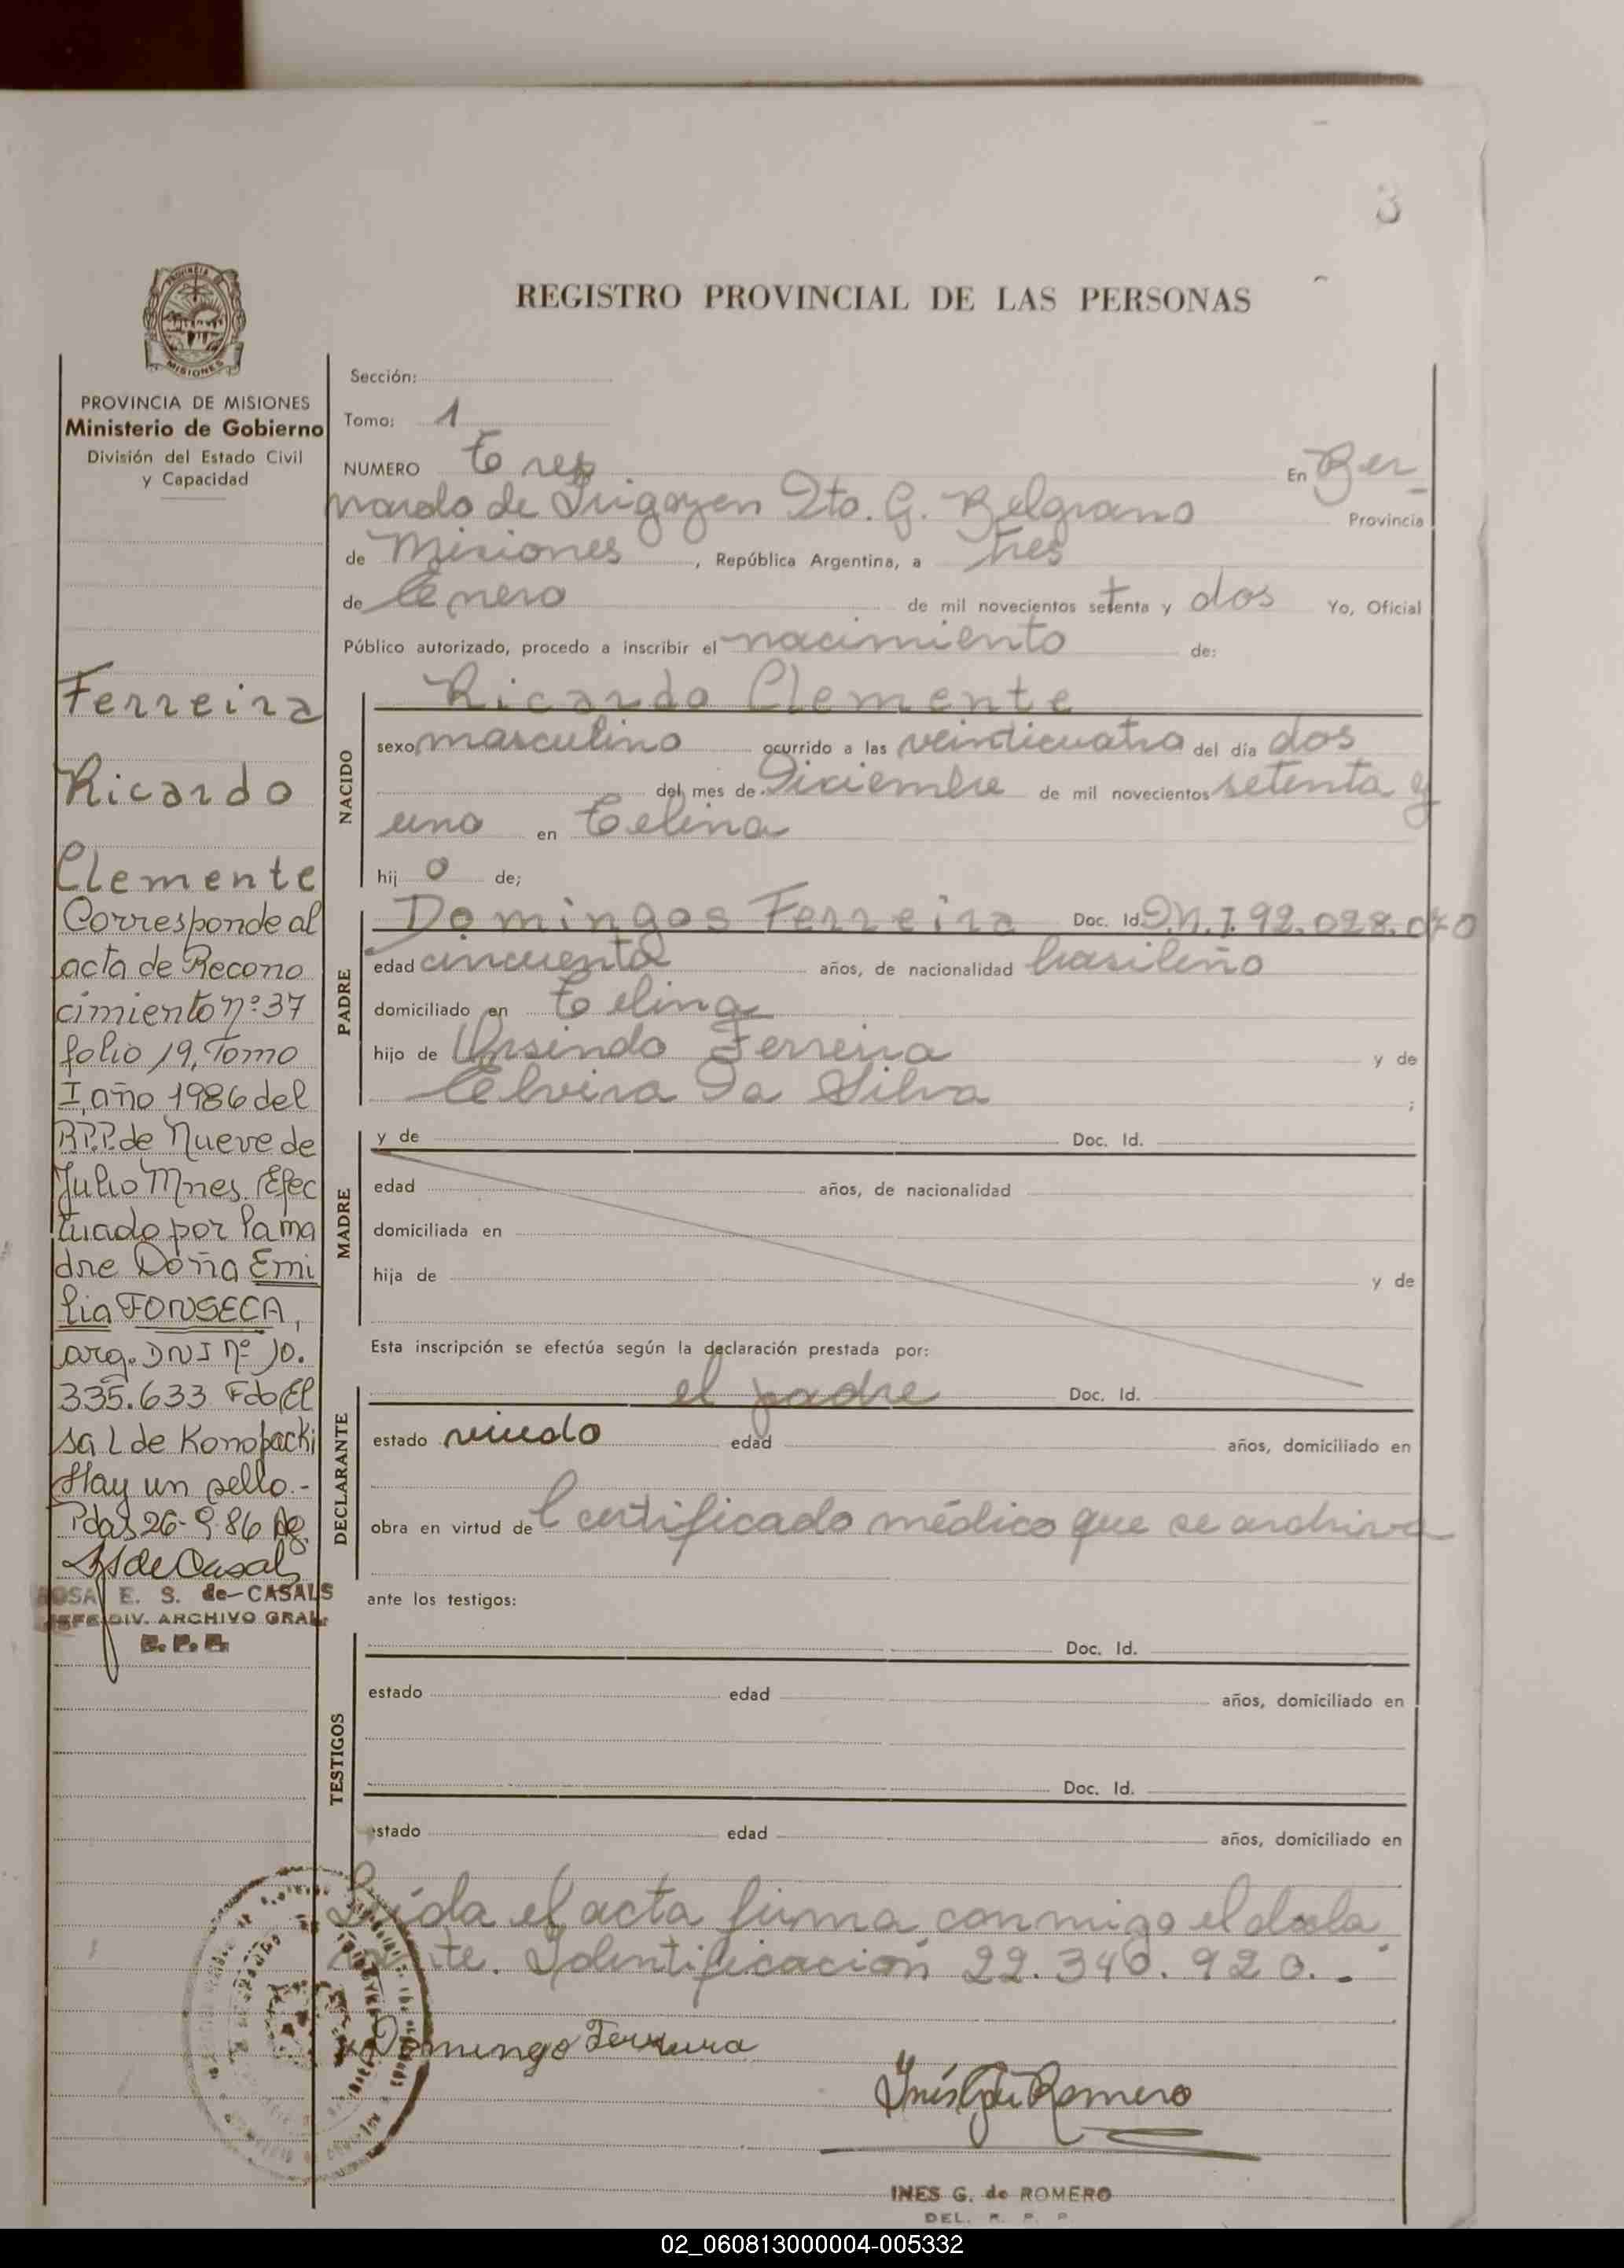 3
REGISTRO PROVINCIAL DE LAS PERSONAS
PROVINCIA DE
MISIONES
PROVINCIA DE MISIONES
Ministerio de Gobierno
División del Estado Civil
y Capacidad
Ferreira
Ricardo
Clemente
Corresponde al
acta de Recono
cimiento nº 37
folio 19, Tomo
I, año 1986 del
R.P.P. de Nueve de
Julio Mnes. Efec
tuado por la ma
dre Doña Emi
lia FONSECA,
arg. DNI Nº 10.
335.633 Fdo El
sa L de Konopacki
Hay un sello.-
Pdas 26-9-86
ROSA E. S. de CASALS
JEFE DIV. ARCHIVO GRAL.
R. P. P.
Sección:
Tomo: 1
NUMERO Tres En Ber
nardo de Irigoyen Dto. G. Belgrano Provincia
de Misiones, República Argentina, a tres
de Enero de mil novecientos setenta y dos Yo, Oficial
Público autorizado, procedo a inscribir el nacimiento de:
NACIDO
Ricardo Clemente
sexo masculino ocurrido a las veinticuatro del día dos
del mes de Diciembre de mil novecientos setenta y
uno en Celina
hij o de;
PADRE
Domingos Ferreira Doc. Id. D.N.I. 92.028.070
edad cincuenta años, de nacionalidad brasileño
domiciliado en Celina
hijo de Ursindo Ferreira y de
Elvira Da Silva ;
MADRE
y de Doc. Id.
edad años, de nacionalidad
domiciliada en
hija de y de
Esta inscripción se efectúa según la declaración prestada por:
DECLARANTE
el padre Doc. Id.
estado viudo edad años, domiciliado en
obra en virtud de l certificado médico que se archiva
ante los testigos:
TESTIGOS
Doc. Id.
estado edad años, domiciliado en
Doc. Id.
estado edad años, domiciliado en
Leída el acta firma conmigo el decla
rante. Identificación 22.340.920.-
x Domingo Ferreira
Inés G. de Romero
INES G. de ROMERO
DEL. R. P. P
02_060813000004-005332